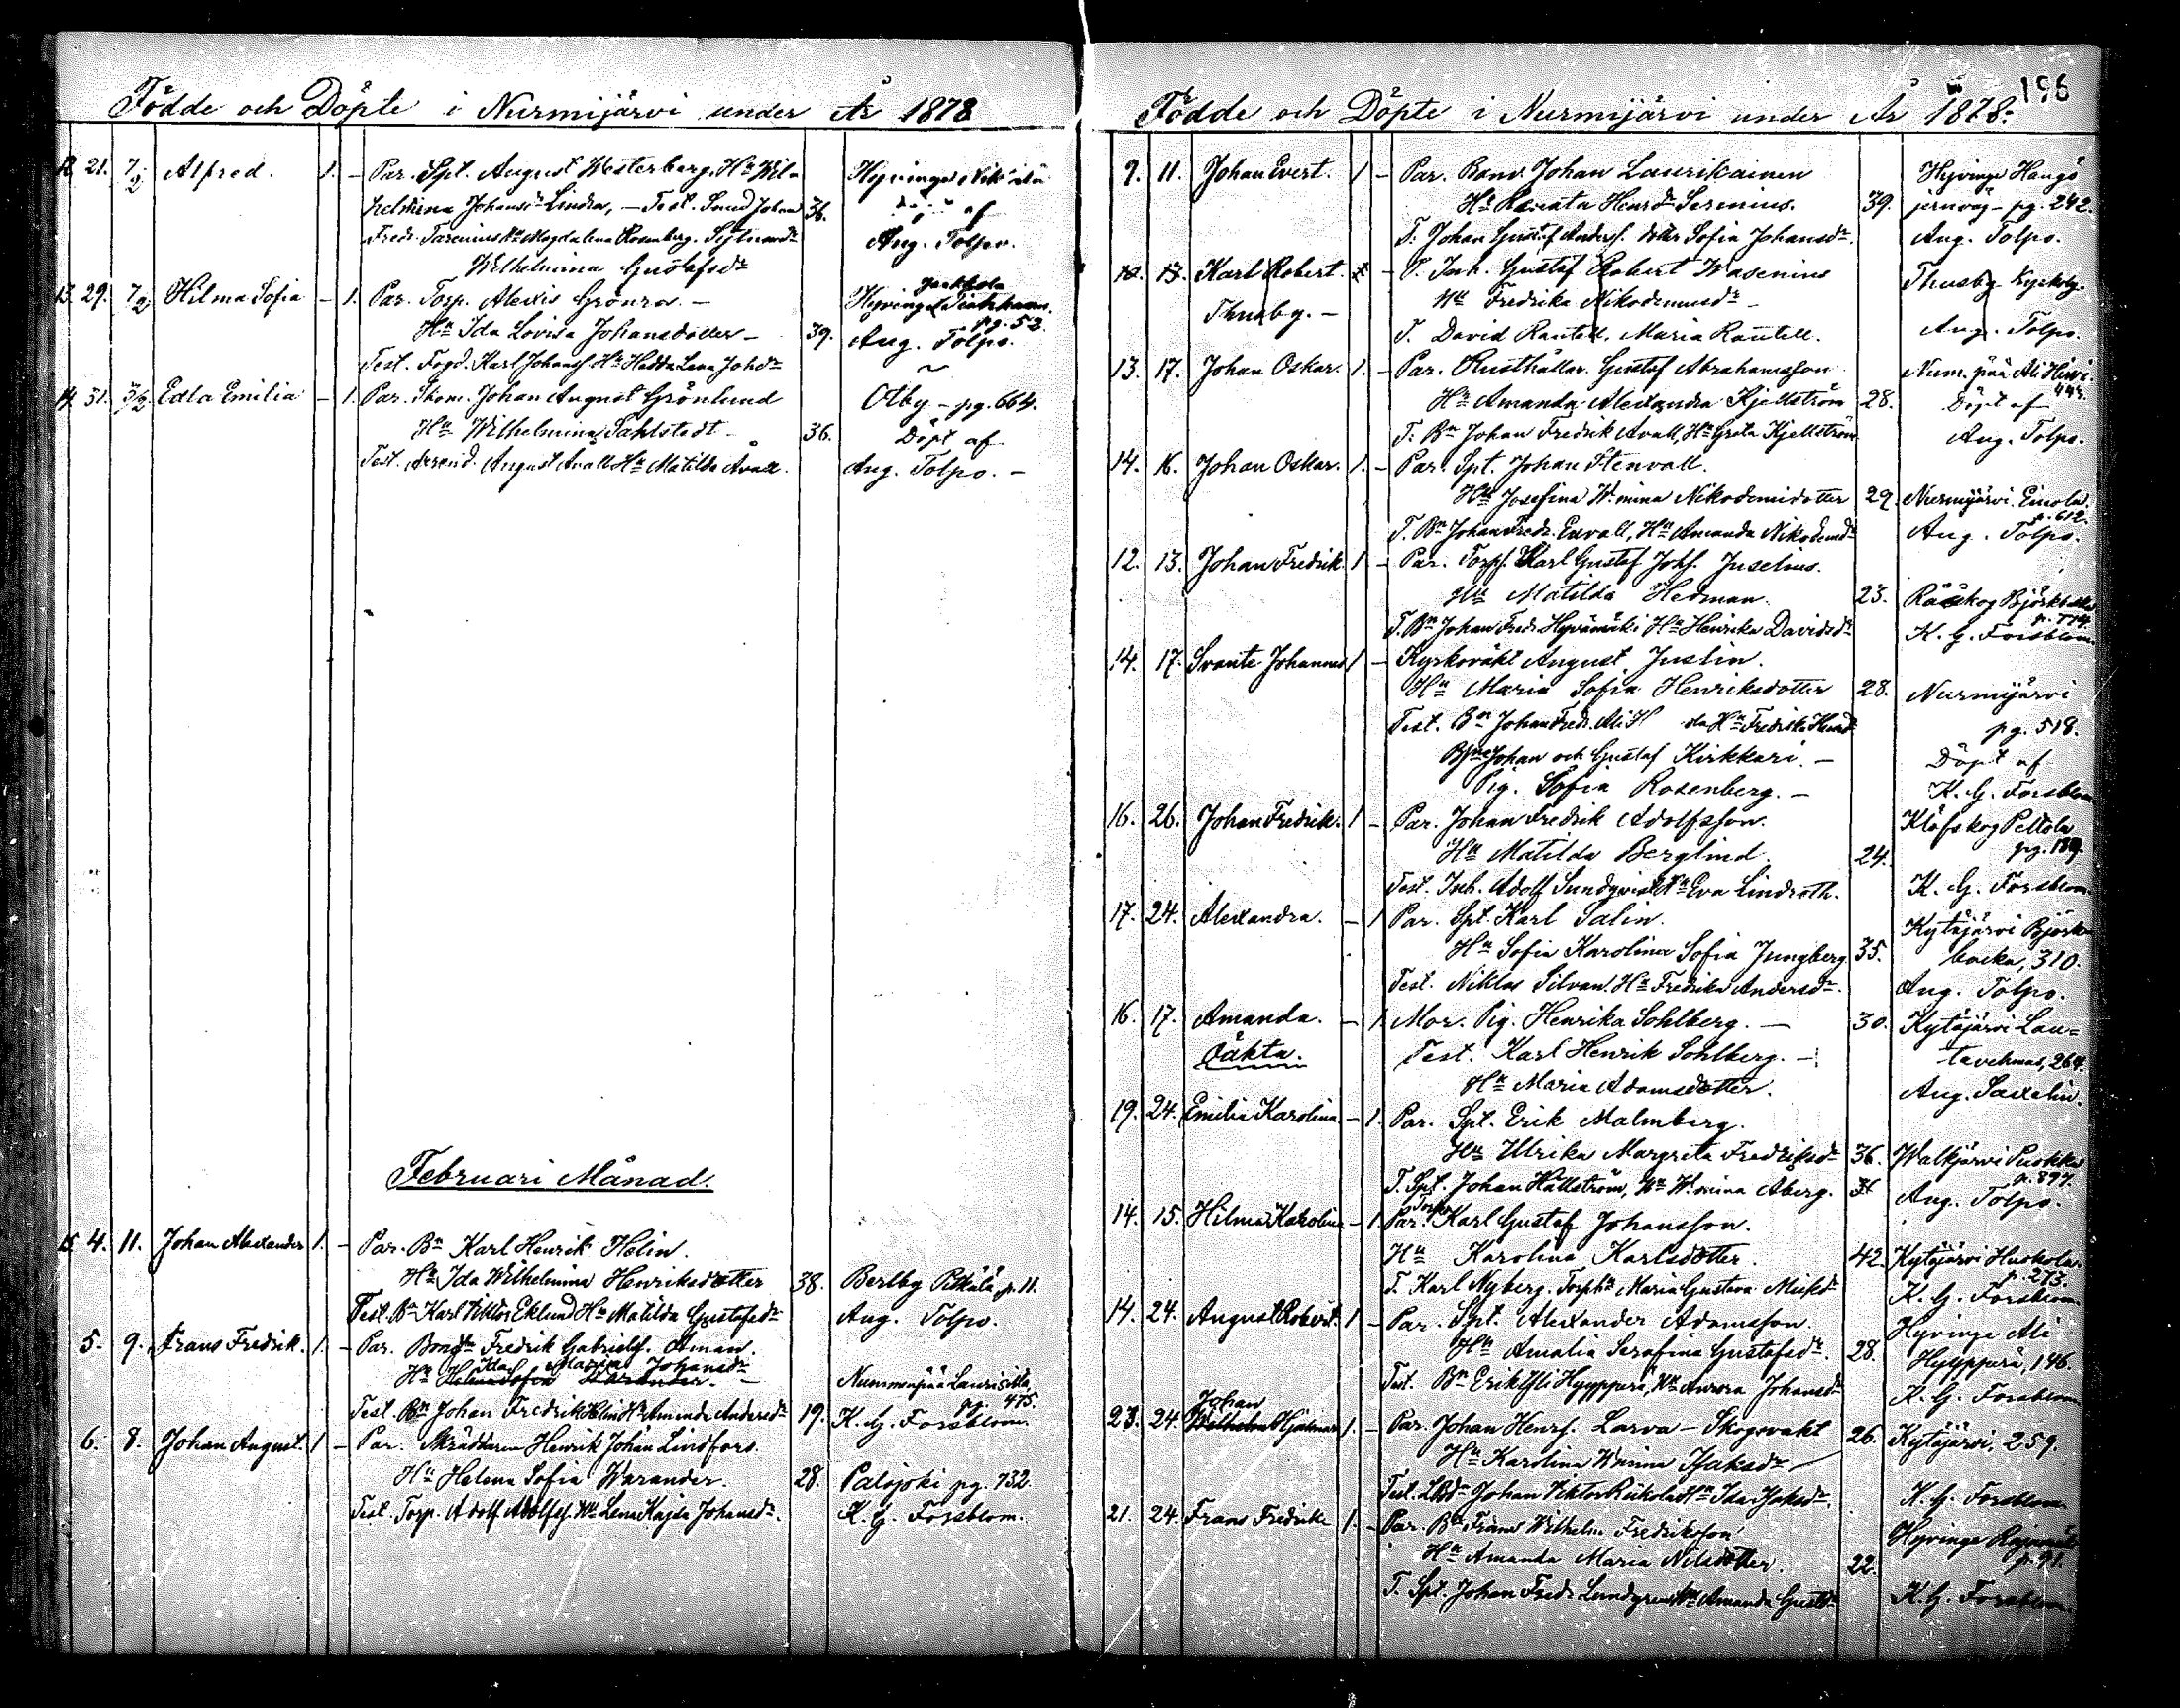 Födde och Döpte i Nurmijärvi under År 1878
12. 21. 7/2 Alfred. 1. - Par. Spt. August Westerberg, Hu Wil-
helmina Johansdr Lindra, - Test. Smed Johan 36.
Fredr. Tarenius Hu Magdalena Rosenberg.
Wilhelmina Gustafsdr
Hyvinge
Aug. Tolpo.
13. 29. 7/2 Hilma Sofia - 1. Par. Torp. Alexis Grönros. -
Hu Ida Lovisa Johansdotter - 39.
Test. Fogd. Karl Johansf. Hu Hedda Lena Johdr
Jaakkola
Hyvinge
pg. 52.
Aug. Tolpo.
14. 31. 3/2 Edla Emilia - 1. Par. Skom. Johan August Grönlund
Hu Wilhelmina Sahlstedt - 36.
Test. Arrend. August Avall Hu Matilda Avall.
Olby - pg. 664.
Döpt af
Aug. Tolpo. -
Februari Månad.
15. 4. 11. Johan Alexander 1. - Par. Bn Karl Henrik Helin.
Hu Ida Wilhelmina Henriksdotter 38.
Test. Bn Karl Viktor Eklund Hu Matilda Gustafsdr
Bertby Pitkälä p. 11.
Aug. Tolpo.
5. 9. Frans Fredrik. 1. - Par. Fredrik Gabrielsf. Oman.
Ida Maria Johansdr
Hu Helena Sofia Warander. -
Test. Bn Johan Fredrik Helin Hu Amanda Andersdr 19.
Nummenpää Laurisila
pg. 475.
K. G. Forsblom.
6. 8. Johan August. 1 - Par. Skräddaren Henrik Johan Lindfors.
Hu Helena Sofia Warander. 28.
Test. Torp. Adolf Adolfsf. Hu Lena Kajsa Johansdr.
Palojoki pg. 732.
K. G. Forsblom.
196
Födde och Döpte i Nurmijärvi under År 1878.
9. 11. Johan Evert. 1 - Par. Banv. Johan Laurikainen
Hu Renata Henrdr Serenius. 39.
T. Johan Gustaf Andersf. dotter Sofia Johansdr.
Hyvinge Hangö
jernväg - pg. 242.
Aug. Tolpo.
10. 13. Karl Robert. 1 - P. Inh. Gustaf Robert Wasenius
Thusby. - Hu Fredrika Nikodemusdr -
T. David Rantell, Maria Rantell.
Thusby Kyrkoby.
Aug. Tolpo.
13. 17. Johan Oskar. 1. - Par. Rusthållar. Gustaf Abrahamsson
Hu Amanda Alexandra Kjellström 28.
T. Bn Johan Fredrik Avall, Hu Greta Kjellström
Num. pää Ali Hiivi.
443.
Döpt af
Aug. Tolpo.
14. 16. Johan Oskar. 1. - Par. Spt. Johan Stenvall.
Hu Josefina W.mina Nikodemidotter 29.
T. Bn Johan Fredr. Envall, Hu Amanda Nikodemdr
Nurmijärvi Einola.
p. 612.
Aug. Tolpo.
12. 13. Johan Fredrik. 1 - Par. Torpf. Karl Gustaf Johf. Juselius.
Hu Matilda Hedman. 23.
T. Bn Johan Fredr. Hyvämäki Hu Henrika Davidsdr
Raaskog Björkbacka
p. 774.
K. G. Forsblom.
14. 17. Svante Johannes 1 - Kyrkovakt August Justin.
Hu Maria Sofia Henriksdotter 28.
Test. Bn Johan Fredr. Ali H la Hu Fredrika Henrdr
Johan och Gustaf Kirkkari. -
Pig. Sofia Rosenberg. -
Nurmijärvi
pg. 518.
Döpt af
K. G. Forsblom
16. 26. Johan Fredrik. 1 - Par. Johan Fredrik Adolfsson.
Hu Matilda Berglind. 24.
Test. Inh. Adolf Sundqvist Hu Eva Lindroth.
Klöfskog Peltola
pg. 189.
K. G. Forsblom.
17. 24. Alexandra. - 1 Par. Spt. Karl Salin.
Hu Sofia Karolina Sofia Jungberg. 35.
Test. Niklas Silvan. Hu Fredrika Andersdr.
Kytäjärvi Björk-
backa, 310.
Aug. Tolpo.
16. 17. Amanda. - 1. Mor. Pig. Henrika Sohlberg. - 30.
Oäkta. Test. Karl Henrik Sohlberg. -
Hu Maria Adamsdotter.
Kytäjärvi Lau-
tavehmas, 264.
Aug. Saxelin.
19. 24. Emilia Karolina - 1. Par. Spt. Erik Malmberg.
Hu Ulrika Margreta Fredriksdr 36.
T. Spt. Johan Hällström, Hu W.mina Åberg. 36
Walkjärvi Puokka
p. 897.
Aug. Tolpo.
14. 15. Hilma Karolina - 1. Par. Torpar Karl Gustaf Johansson.
Hu Karolina Karlsdotter. 42.
T. Karl Nyberg. Maria Gustava
Kytäjärvi Huskola.
p. 273.
K. G. Forsblom.
14. 24. August Robert. 1 - Par. Spt. Alexander Adamsson.
Hu Amalia Serafina Gustafsdr. 28.
Test. Bn Erik Ali Hyyppärä, Hu Aurora Johansdr
Hyvinge Ali
Hyyppärä, 146.
K. G. Forsblom
Johan
23. 24. Wilhelm Hjalmar 1. - Par. Johan Henrf. Larva - Skogsvakt 26.
Hu Karolina Wmina Isaksdr
Test. Johan Viktor Riikola Hu Ida Isaksdr.
Kytäjärvi, 259.
K. G. Forsblom
21. 24. Frans Fredrik 1. - Par. Bn Frans Wilhelm Fredriksson
Hu Amanda Maria Nilsdotter. 22.
T. Spt. Johan Fredr. Lundgren Hu Amanda Gustdr
Hyvinge
p. 91.
K. G. Forsblom.